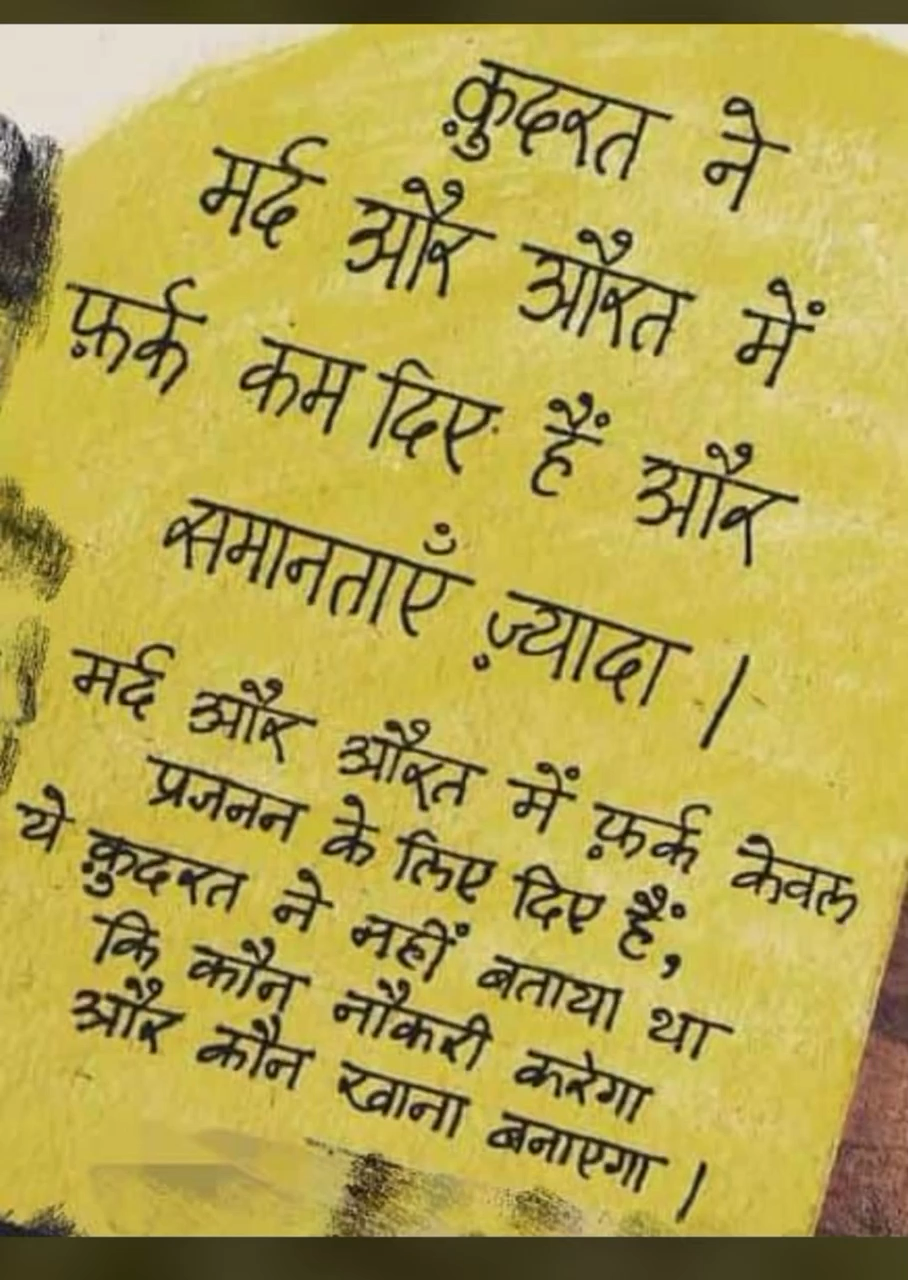 क़ुदरत ने
मर्द और औरत में
फ़र्क कम दिए हैं और
समानताएँ ज़्यादा ।
मर्द और औरत में फ़र्क केवल
प्रजनन के लिए दिए हैं,
ये क़ुदरत ने नहीं बताया था
कि कौन नौकरी करेगा
और कौन खाना बनाएगा ।